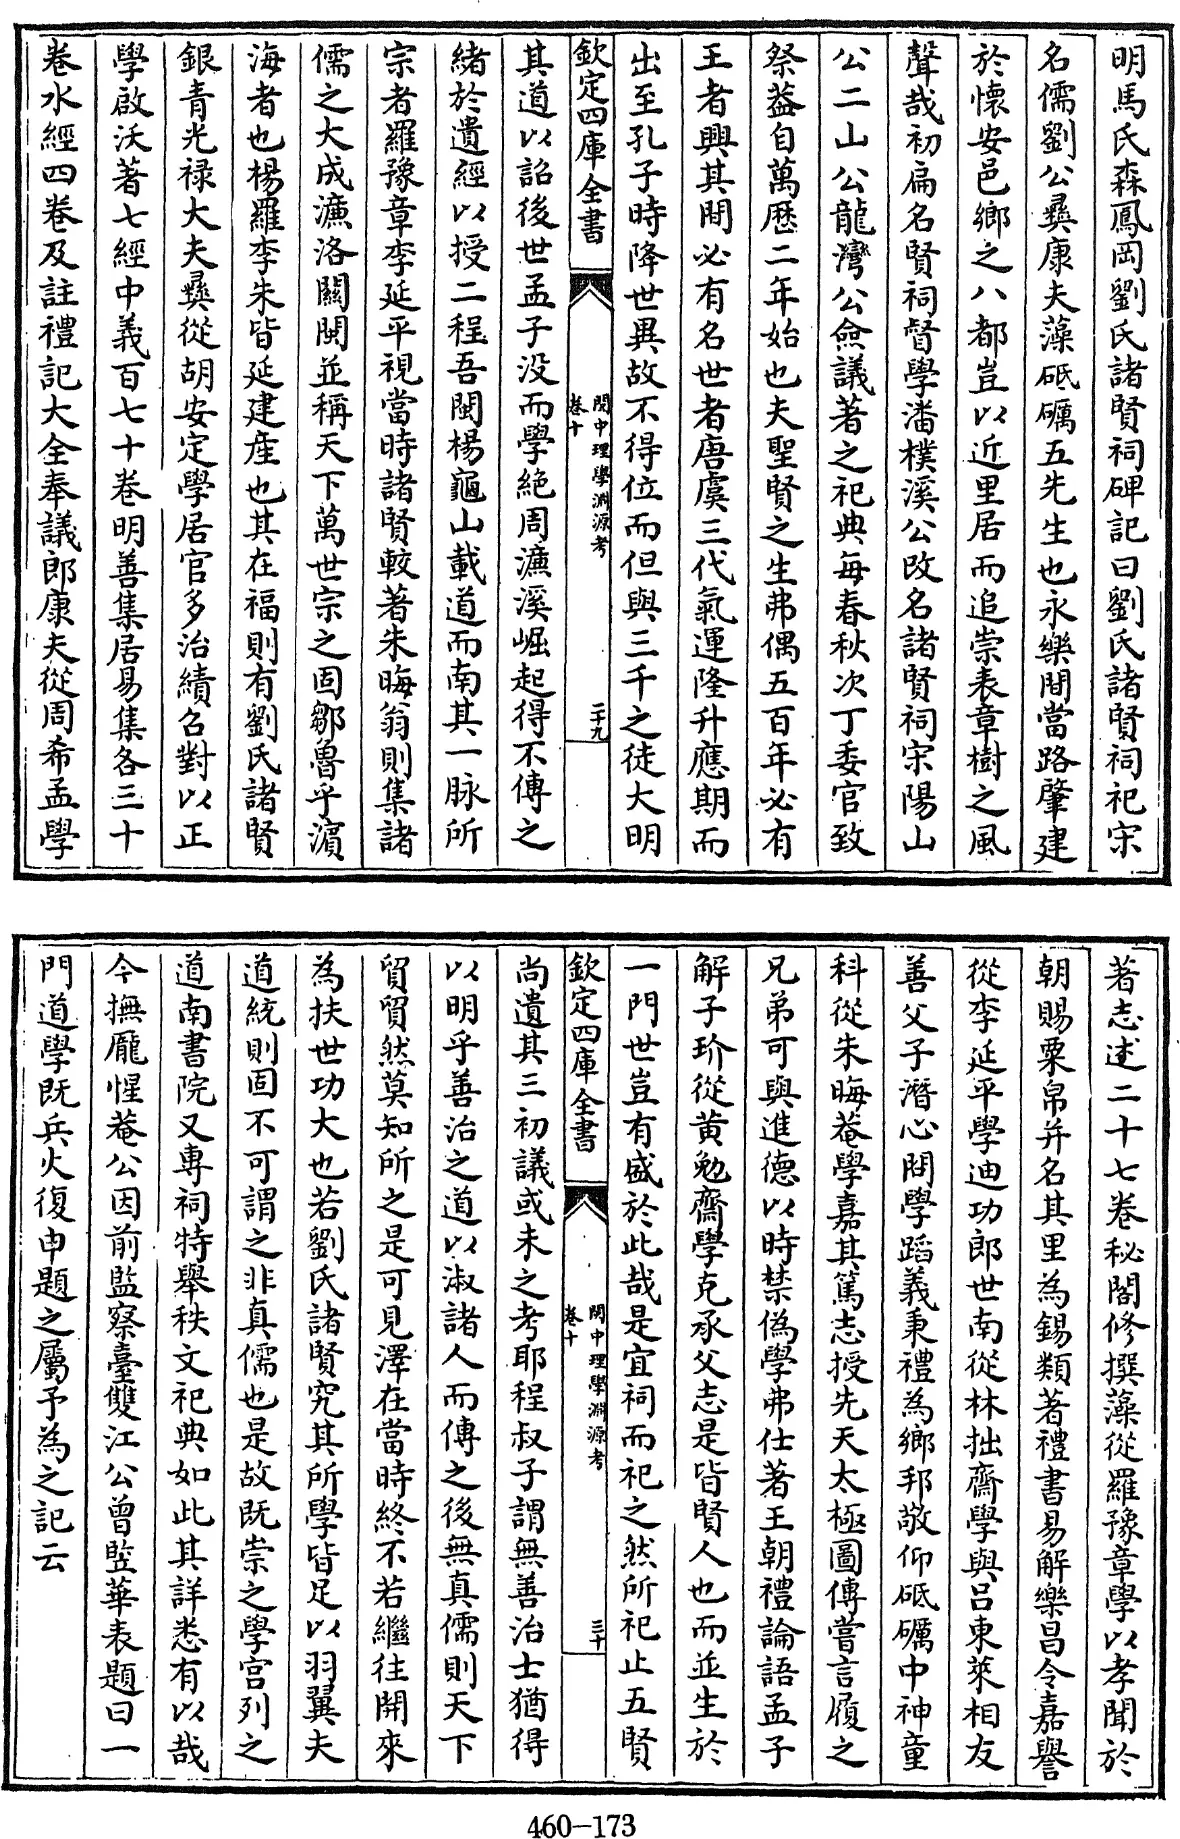 明馬氏森鳳岡劉氏諸賢祠碑記曰劉氏諸賢祠祀宋
名儒劉公彞康夫藻砥礪五先生也永樂間當路肇建
於懷安邑鄉之八都豈以近里居而追崇表章樹之風
聲哉初扁名賢祠督學潘樸溪公改名諸賢祠宋陽山
公二山公龍灣公僉議著之祀典每春秋次丁委官致
祭葢自萬歷二年始也夫聖賢之生弗偶五百年必有
王者興其間必有名世者唐虞三代氣運隆升應期而
出至孔子時降世異故不得位而但與三千之徒大明
欽定四庫全書
閩中理學淵源考
卷十
二十九
其道以詔後世孟子没而學絶周濂溪崛起得不傳之
緒於遺經以授二程吾閩楊龜山載道而南其一脉所
宗者羅豫章李延平視當時諸賢較著朱晦翁則集諸
儒之大成濂洛關閩並稱天下萬世宗之固鄒魯乎濵
海者也楊羅李朱皆延建産也其在福則有劉氏諸賢
銀青光禄大夫彞從胡安定學居官多治績召對以正
學啟沃著七經中義百七十卷明善集居易集各三十
卷水經四卷及註禮記大全奉議郎康夫從周希孟學
著志述二十七卷秘閣修撰藻從羅豫章學以孝聞於
朝賜粟帛并名其里為錫類著禮書易解樂昌令嘉譽
從李延平學迪功郎世南從林拙齋學與吕東萊相友
善父子潛心問學蹈義秉禮為鄉邦敬仰砥礪中神童
科從朱晦菴學嘉其篤志授先天太極圖傳嘗言履之
兄弟可與進德以時禁偽學弗仕著王朝禮論語孟子
解子玠從黄勉齋學克承父志是皆賢人也而並生於
一門世豈有盛於此哉是宜祠而祀之然所祀止五賢
欽定四庫全書
閩中理學淵源考
卷十
三十
尚遺其三初議或未之考耶程叔子謂無善治士猶得
以明乎善治之道以淑諸人而傳之後無真儒則天下
貿貿然莫知所之是可見澤在當時終不若繼往開來
為扶世功大也若劉氏諸賢究其所學皆足以羽翼夫
道統則固不可謂之非真儒也是故既崇之學宫列之
道南書院又專祠特舉秩文祀典如此其詳悉有以哉
今撫龎惺菴公因前監察臺雙江公曾竪華表題曰一
門道學既兵火復申題之屬予為之記云
460-173